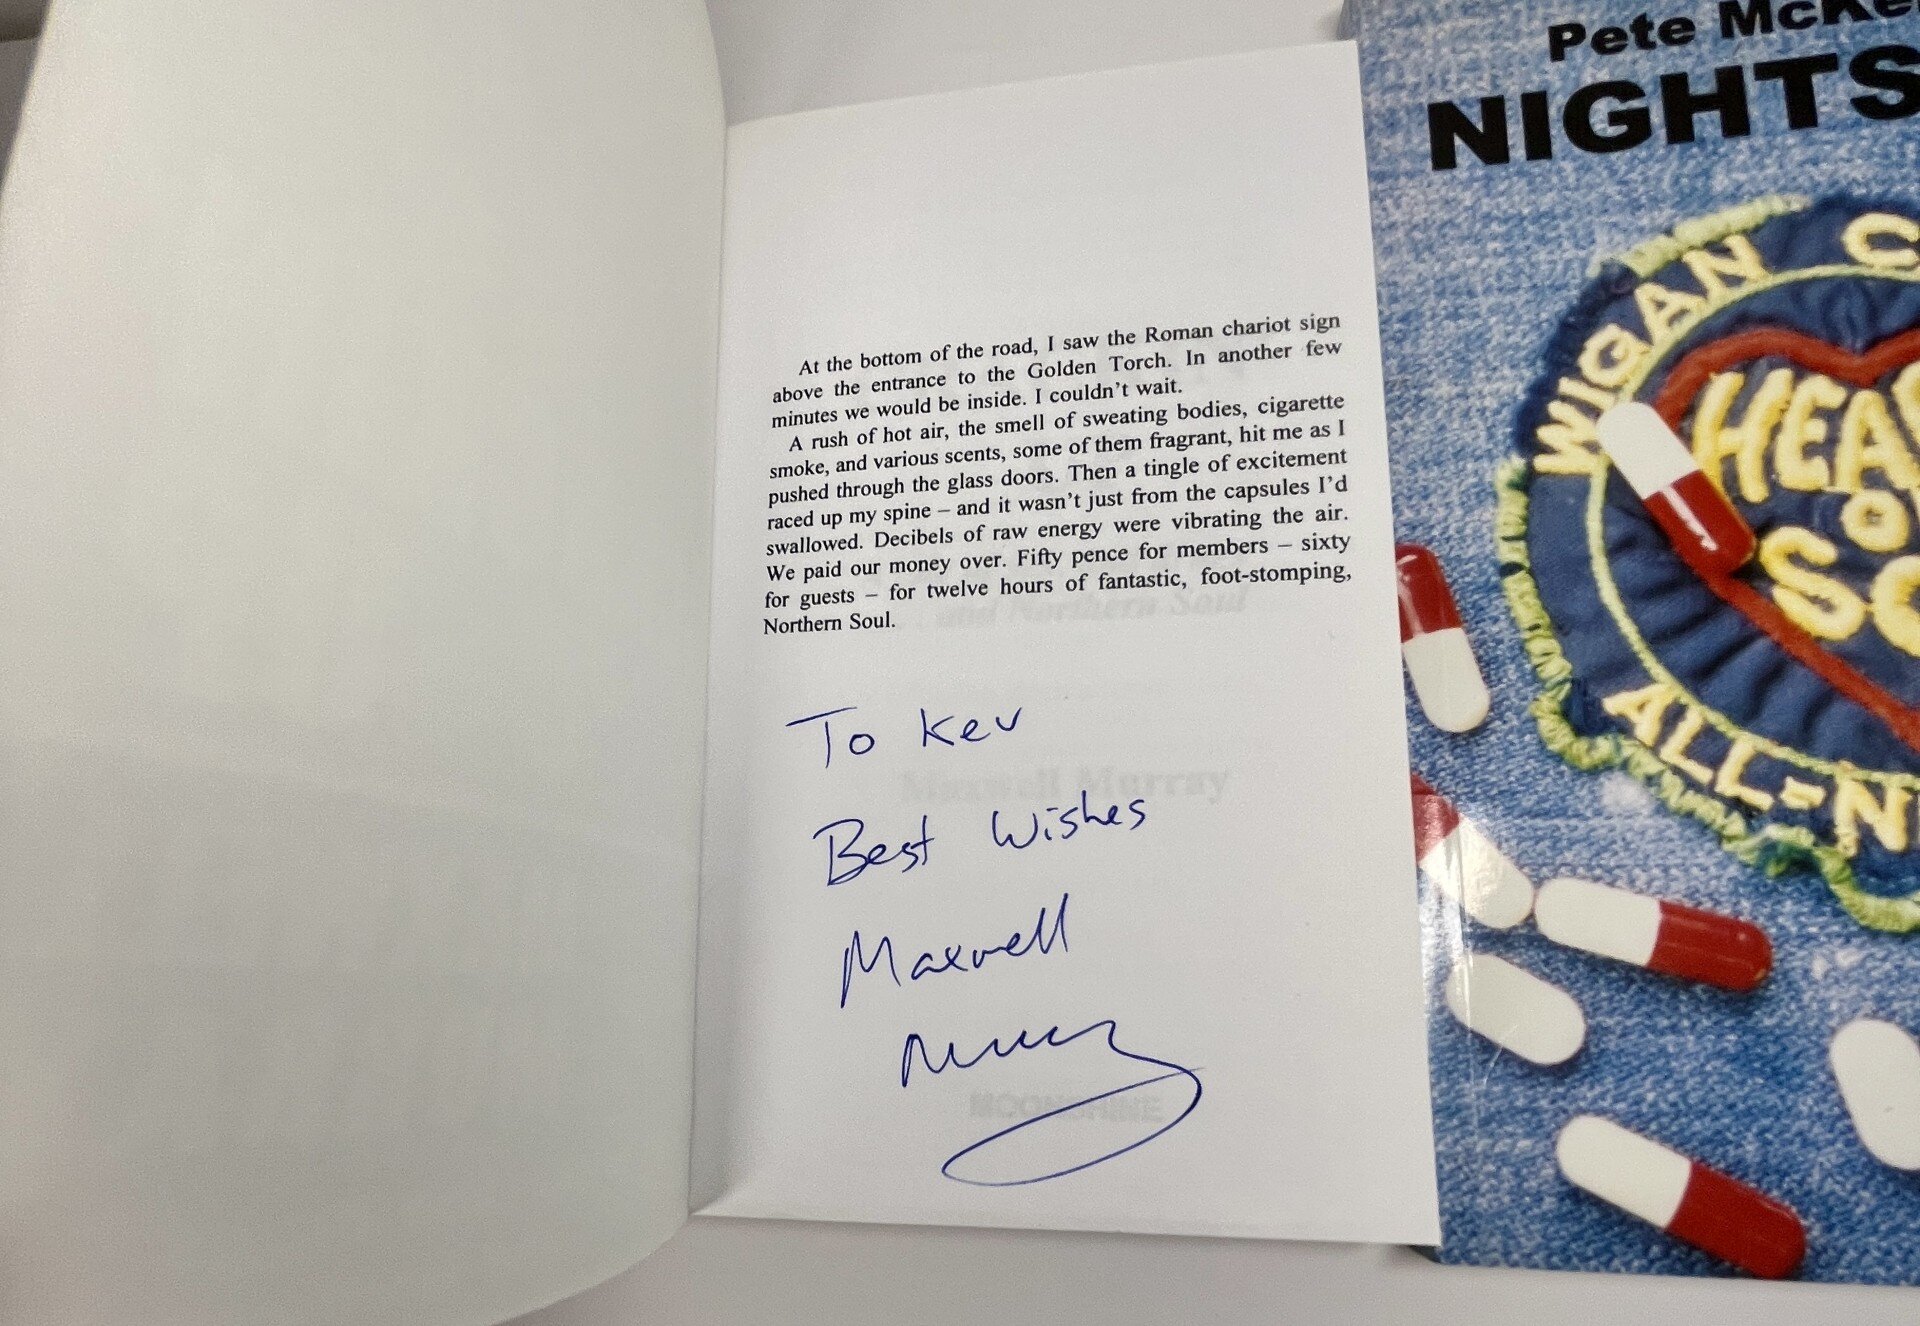 At the bottom of the road, I saw the Roman chariot sign
above the entrance to the Golden Torch. In another few
minutes we would be inside. I couldn't wait.
A rush of hot air, the smell of sweating bodies, cigarette
smoke, and various scents, some of them fragrant, hit me as I
pushed through the glass doors. Then a tingle of excitement
raced up my spine – and it wasn't just from the capsules I'd
swallowed. Decibels of raw energy were vibrating the air.
We paid our money over. Fifty pence for members – sixty
for guests – for twelve hours of fantastic, foot-stomping,
Northern Soul.
and Northern Soul
To Kev
Maxwell Murray
Best Wishes
Maxwell
Murray
MOONSHINE
Pete McKe
NIGHTS
WIGAN C
HEAR
OF
SO
ALL=N